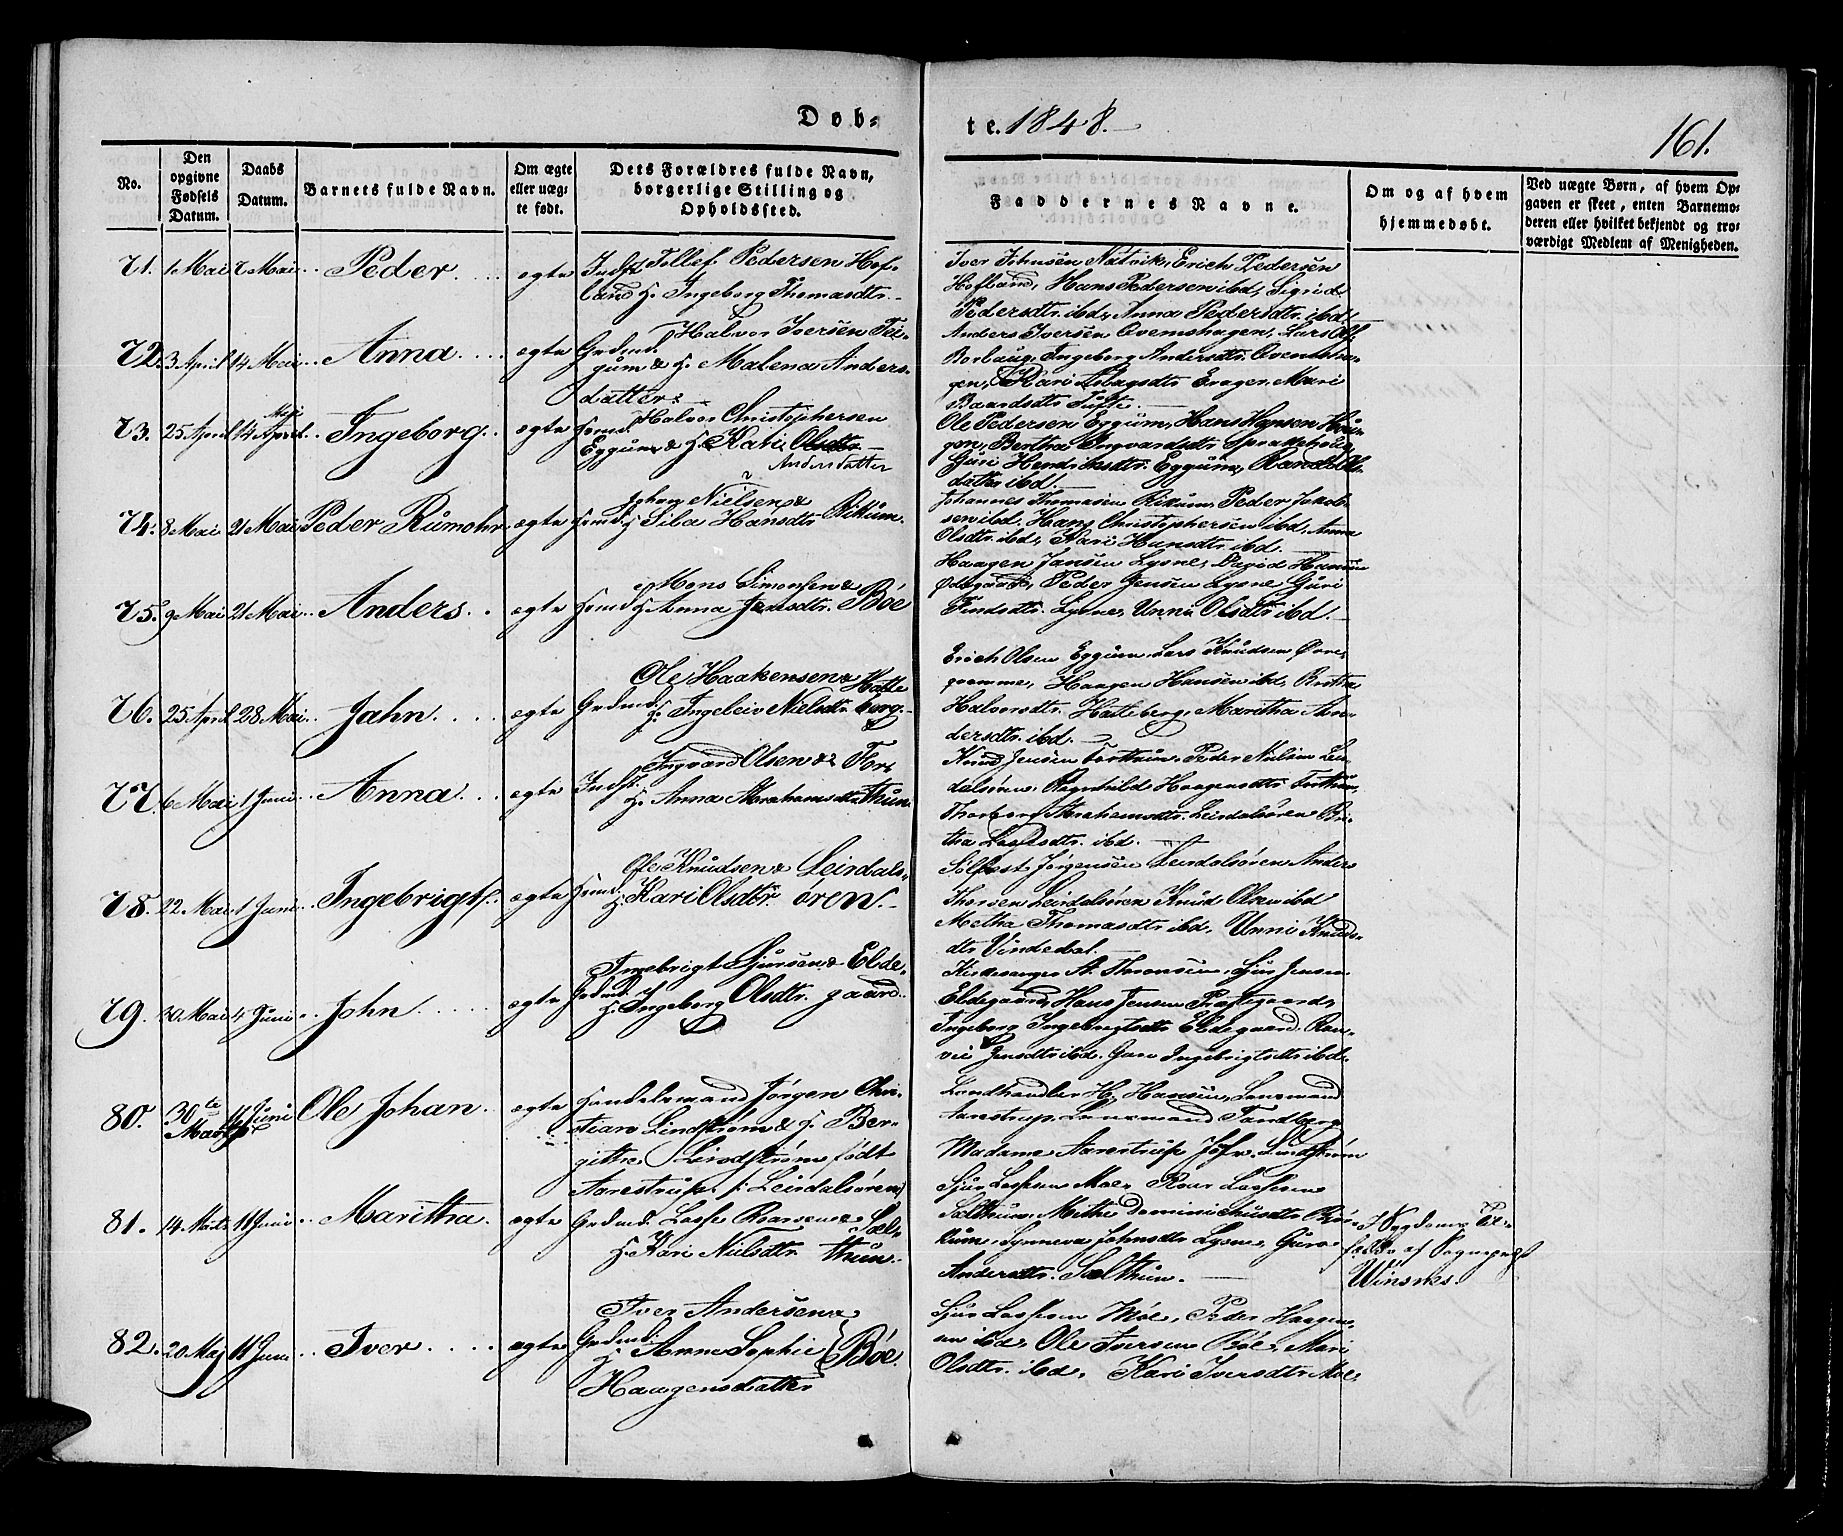 Døb-
te. 1848.
161.
No.
Den
opgivne
Fødsels
Datum.
Daabs
Datum.
Barnets fulde Navn.
Om ægte
eller uæg-
te født.
Dets Forældres fulde Navn,
borgerlige Stilling og
Opholdssted.
Faddernes Navne.
Om og af hvem
hjemmedøbt.
Ved uægte Børn, af hvem Op-
gaven er skeet, enten Barnemo-
deren eller hvilket bekjendt og tro-
værdigt Medlem af Menigheden.
71. 1 Mai 7 Mai Peder. ægte Indst. Tollef Pedersen Hof-
land & H. Ingeborg Thomasdtr.
Iver Johnsen Natvik, Erich Pedersen
Hofland, Hans Pedersen ibd, Sigrid
Pedersdtr. ibd, Anna Pedersdtr. ibd.
72. 3 April 14 Mai Anna ægte Grdmd. Halvor Iversen Tei-
gum & H. Malena Anders-
datter.
Anders Iversen Ovenshagen, Lars Ols.
Borlaug, Ingeborg Andersdtr. Ovensha-
gen, Kari Mari
Baardsdtr Tufte.
73. 25 April 14 April Mai Ingeborg. ægte Huusmd. Halvor Christophersen
Eggum & H. Kari Olsdtr.
Andersdatter
Ole Pedersen Eggum, Hans Hansen Hau-
gen, Bertha Ingvardsdtr Sprakkehoug,
Guri Hendriksdtr. Eggum, Ols-
datter ibd.
74. 8 Mai 21 Mai Peder Rumohr. ægte Huusmd. Johan Nielsen &
H. Sila Hansdtr Rikum.
Johannes Thomasen Rikum, Peder Jakob-
sen ibd. Hans Christophersen ibd. Anna
Olsdtr. ibd, Kari Hansdtr. ibd.
75. 9 Mai 21 Mai Anders. ægte Huusmd. Mons Simonsen &
H. Anna Jensdtr. Böe
Haagen Jansen Lysne, David Hansen
Ødegaard, Peder Jensen Lysne, Guri
Findsdtr. Lysne, Unni Olsdtr ibd.
76. 25 April 28 Mai Jahn. ægte Grdmd. Ole Haakensen &
H. Ingeleiv Nielsdtr. Hatleberg.
Erich Olsen Eggum, Lars Knudsen Øvre-
gramme, Haagen Hansen ibd, Britha
Halvorsdtr. Hatleberg, Maritha An-
dersdtr. ibd.
77. 6 Mai 1 Juni Anna. ægte Indst. Ingvard Olsen &
H. Anna Abrahamsdtr. Forthun.
Knud Jensen Forthun, Peder Nielsen Lei-
dalsören, Ragnhild Haagensdtr. Forthun,
Thorborg Abrahamsdtr. Leirdalsören Bri-
tha Larsdtr. ibd.
78. 22 Mai 1 Juni Ingebrigt. ægte Huusmd. Ole Knudsen &
H. Kari Olsdtr. Leirdals-
ören.
Solfest Jörgensen Leirdalsören Anders
Thorsen Leirdalsören Knud Olsen ibd
Metha Thomasdtr ibd, Unni Knuds-
dtr Vindedal.
79. 30 Mai 4 Juni John. ægte Grdmd. Ingebrigt Sjursen &
H. Ingeborg Olsdtr. Elde-
gaard.
Kirkesanger A. Thronsen, Sjur Jensen
Eldegaard, Hans Jensen Præstegaard,
Ingeborg Ingebrigtsdtr Eldegaard. Ran-
vei Jensdtr ibd. Guri Ingebrigtsdtr ibd.
80. 30te
Marts 11 Juni Ole Johan. ægte Handelsmand Jörgen Chri-
stian Lindström & H. Ber-
githa Lindström födt
Aarestrup i Leirdalsören
Landhandler H. Hansen, Lensmand
Aarestrup, Lensmand Sandberg
Madame Aarestrup Jofr. Lindström
81. 14 Marts 11 Juni Maritha. ægte Grdmd. Lasse Roarsen &
H. Kari Nielsdtr. Sæl-
thun.
Sjur Lassesen Moe, Roar Lassesen
Sælthun, Mithe Ri-
kum, Synneva Johnsdtr Lysne, Guro
Andersdtr. Sælthun.
I Sygdoms Til-
fælde af Sognepræst
Winsnes
82. 20 Maj 11 Juni Iver. ægte Grdmd. Iver Andersen &
H. Anne Sophie
Haagensdatter Böe.
Sjur Lassesen Möe, Peder Haagen-
sen ibd, Ole Iversen Böe, Mari
Olsdtr. ibd, Kari Iversdtr Moe,